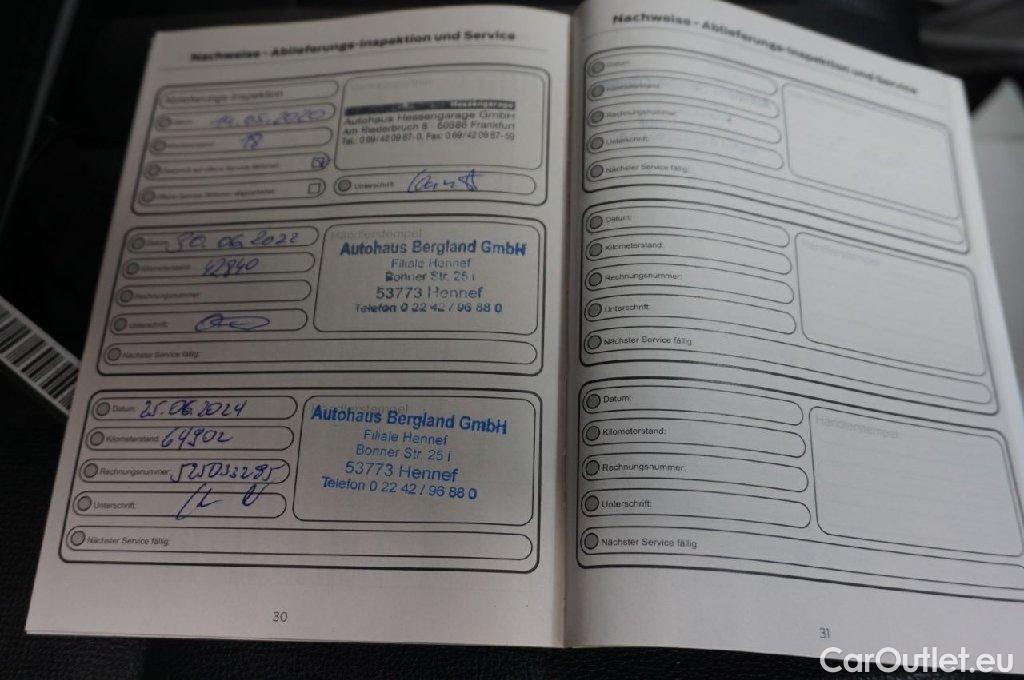 Nachweise - Ablieferungs-Inspektion und Service
Ablieferungs-Inspektion
14.05.2020
18
Hessengarage
Autohaus Hessengarage GmbH
Am Riederbruch 8 - 60386 Frankfurt
Unterschrift:
Datum: 30.06.2022
Kilometerstand: 42840
Rechnungsnummer:
Unterschrift:
Nächster Service fällig:
Händlerstempel
Autohaus Bergland GmbH
Filiale Hennef
Bonner Str. 25 i
53773 Hennef
Telefon 0 22 42 / 96 88 0
Datum: 25.06.2024
Kilometerstand: 64902
Rechnungsnummer: 525033295
Unterschrift:
Nächster Service fällig:
Händlerstempel
Autohaus Bergland GmbH
Filiale Hennef
Bonner Str. 25 i
53773 Hennef
Telefon 0 22 42 / 96 88 0
30
Nachweise - Ablieferungs-Inspektion und Service
Datum:
Kilometerstand:
Rechnungsnummer:
Unterschrift:
Nächster Service fällig:
Datum:
Kilometerstand:
Rechnungsnummer:
Unterschrift:
Nächster Service fällig:
Händlerstempel
Datum:
Kilometerstand:
Rechnungsnummer:
Unterschrift:
Nächster Service fällig
Händlerstempel
31
CarOutlet.eu